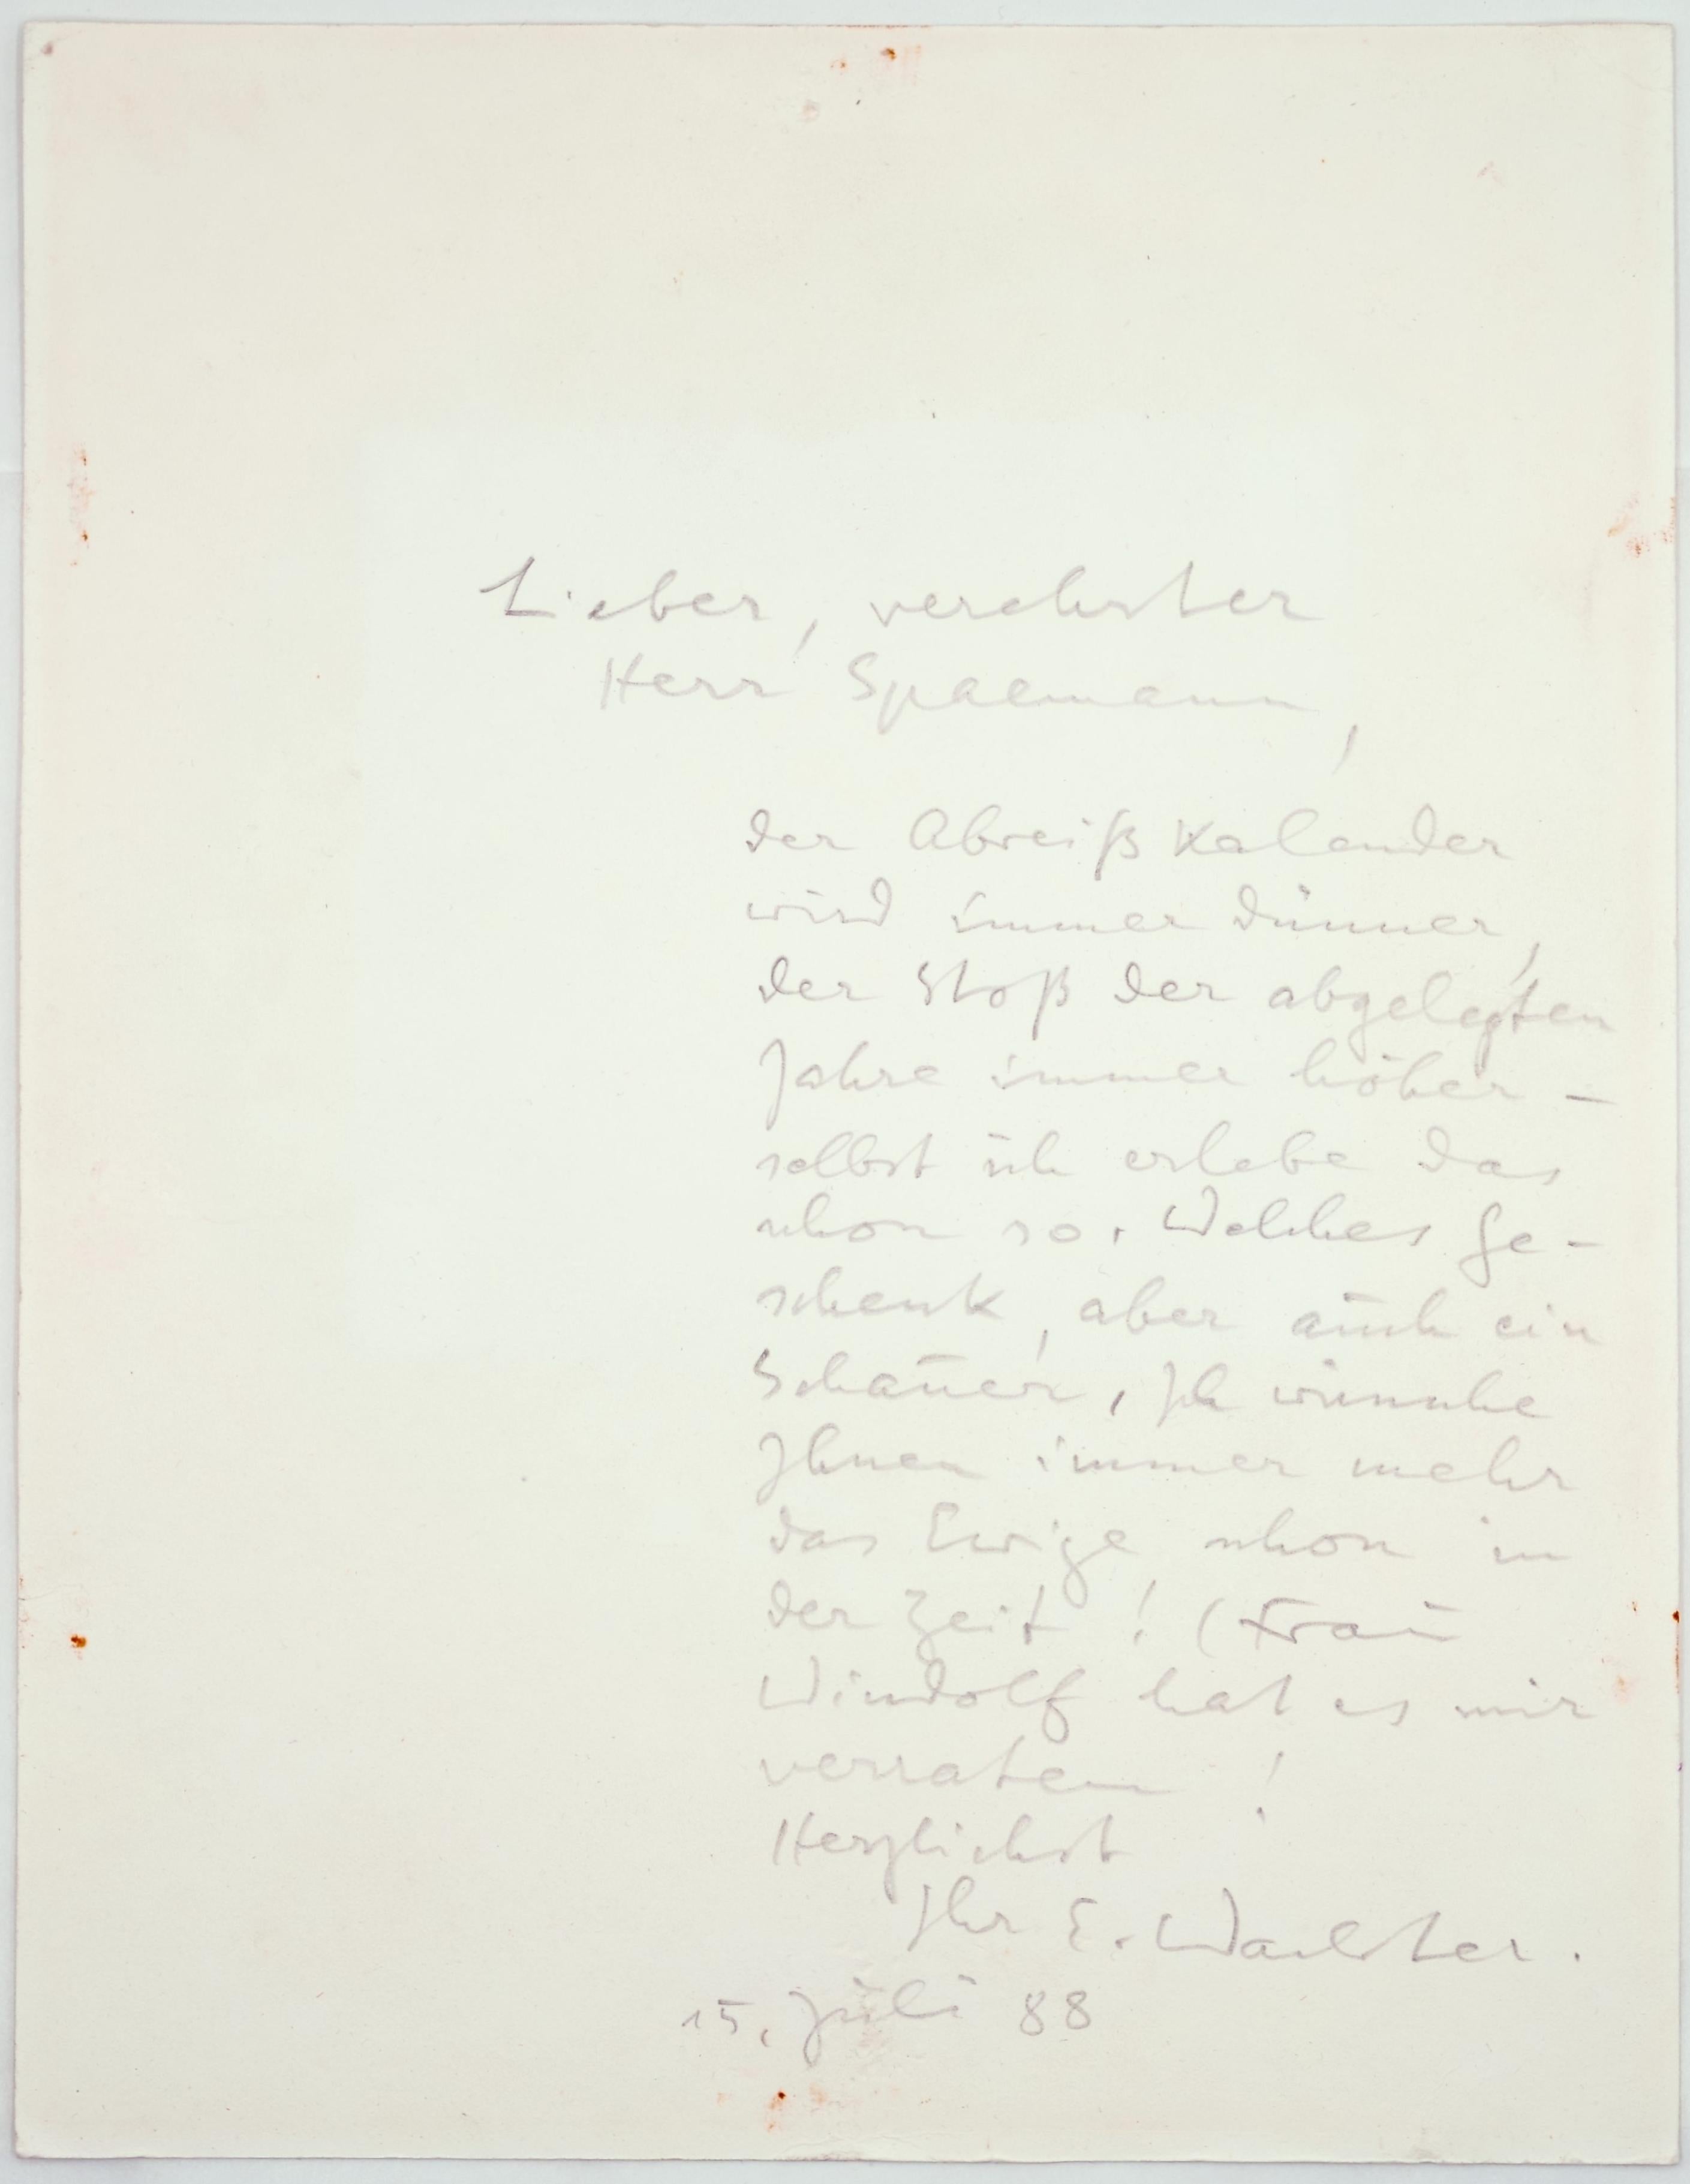 Lieber, verehrter
Herr Spaemann,
der Abreißkalender
wird immer dünner,
der Stoß der abgelegten
Jahre immer höher –
selbst ich erlebe das
schon so. Welches Ge-
schenk, aber auch ein
Schauer. Ich wünsche
Ihnen immer mehr
das Ewige schon in
der Zeit! (Frau
Windolf hat es mir
verraten!
Herzlichst
Ihr E. Wachter.
15. Juli 88